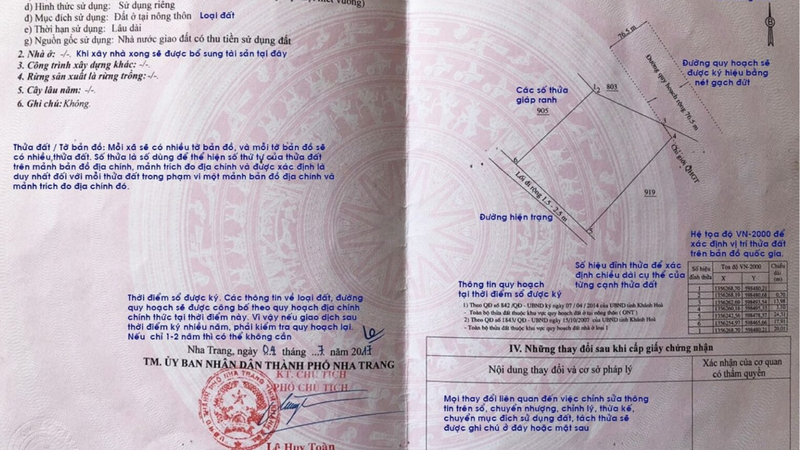 d) Hình thức sử dụng: Sử dụng riêng
đ) Mục đích sử dụng: Đất ở tại nông thôn Loại đất
e) Thời hạn sử dụng: Lâu dài
g) Nguồn gốc sử dụng: Nhà nước giao đất có thu tiền sử dụng đất
2. Nhà ở: -/-. Khi xây nhà xong sẽ được bổ sung tài sản tại đây
3. Công trình xây dựng khác: -/-.
4. Rừng sản xuất là rừng trồng: -/-.
5. Cây lâu năm: -/-.
6. Ghi chú: Không.
Thửa đất / Tờ bản đồ: Mỗi xã sẽ có nhiều tờ bản đồ, và mỗi tờ bản đồ sẽ
có nhiều thửa đất. Số thửa là số dùng để thể hiện số thứ tự của thửa đất
trên mảnh bản đồ địa chính, mảnh trích đo địa chính và được xác định là
duy nhất đối với mỗi thửa đất trong phạm vi một mảnh bản đồ địa chính và
mảnh trích đo địa chính đó.
Thời điểm sổ được ký. Các thông tin về loại đất, đường
quy hoạch sẽ được công bố theo quy hoạch địa chính
chính thức tại thời điểm này. Vì vậy nếu giao dịch sau
thời điểm ký nhiều năm, phải kiểm tra quy hoạch lại.
Nếu chỉ 1-2 năm thì có thể không cần
Nha Trang, ngày 04 tháng 7 năm 2017
TM. ỦY BAN NHÂN DÂN THÀNH PHỐ NHA TRANG
KT. CHỦ TỊCH
PHÓ CHỦ TỊCH
Lê Huy Toàn
B
76.5 m
Đường quy hoạch rộng 76.5 m
Đường quy hoạch sẽ
được ký hiệu bằng
nét gạch đứt
Các số thửa
giáp ranh
905
1
2
803
3
4
Chỉ giới QHGT
919
6
5
Lối đi rộng 1.5 - 2.5 m
Đường hiện trạng
Hệ tọa độ VN-2000 để
xác định vị trí thửa đất
trên bản đồ quốc gia.
Số hiệu đỉnh thửa để xác
định chiều dài cụ thể của
từng cạnh thửa đất
Thông tin quy hoạch
tại thời điểm sổ được ký
1) Theo QĐ số 842 /QĐ - UBND ký ngày 07 / 04 / 2014 của UBND tỉnh Khánh Hoà
- Toàn bộ thửa đất thuộc khu vực quy hoạch đất ở tại nông thôn ( ONT )
2) Theo QĐ số 1845/ QĐ - UBND ngày 15/10/2007 của UBND tỉnh Khánh Hoà
- Toàn bộ thửa đất thuộc khu vực quy hoạch đất nhà ở loại I
Số hiệu đỉnh
Tọa độ VN-2000
X
Y
Chiều dài (m)
IV. Những thay đổi sau khi cấp giấy chứng nhận
Nội dung thay đổi và cơ sở pháp lý
Xác nhận của cơ quan
có thẩm quyền
Mọi thay đổi liên quan đến việc chỉnh sửa thông
tin trên sổ, chuyển nhượng, chỉnh lý, thừa kế,
chuyển mục đích sử dụng đất, tách thửa sẽ
được ghi chú ở đây hoặc mặt sau